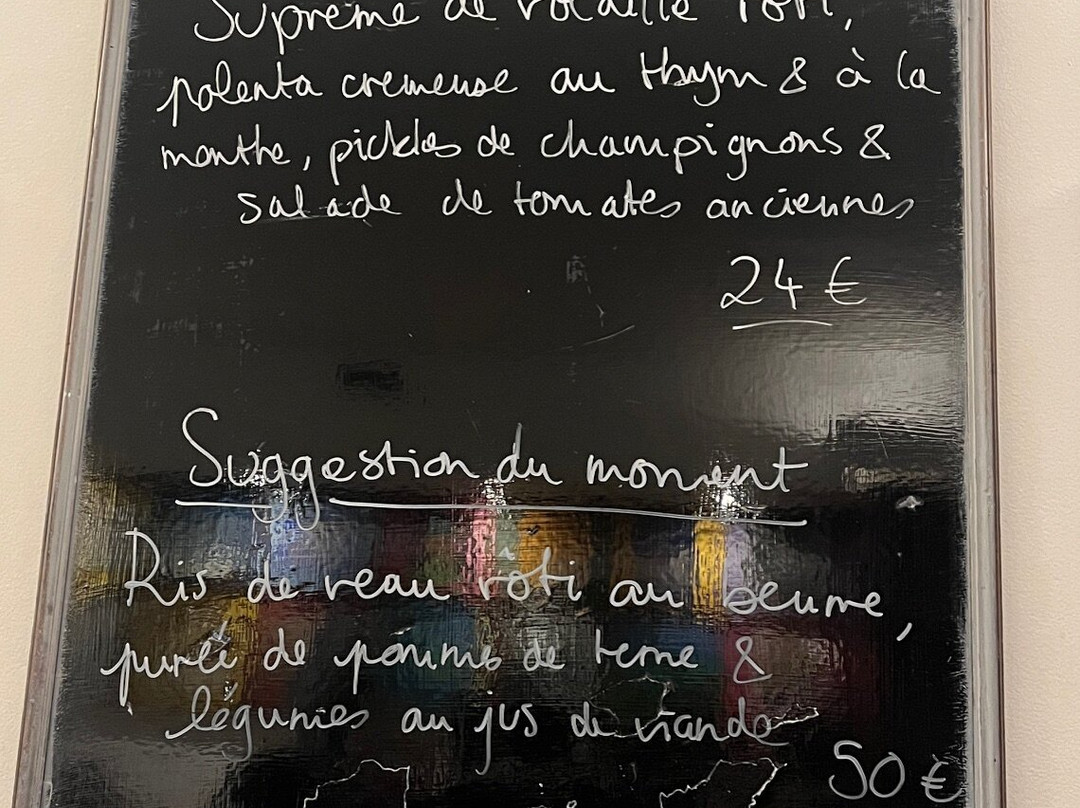 Suprême de volaille rôti,
polenta crémeuse au thym & à la
menthe, pickles de champignons &
salade de tomates anciennes
24 €
Suggestion du moment
Ris de veau rôti au beurre,
purée de pomme de terre &
légumes au jus de viande
50 €